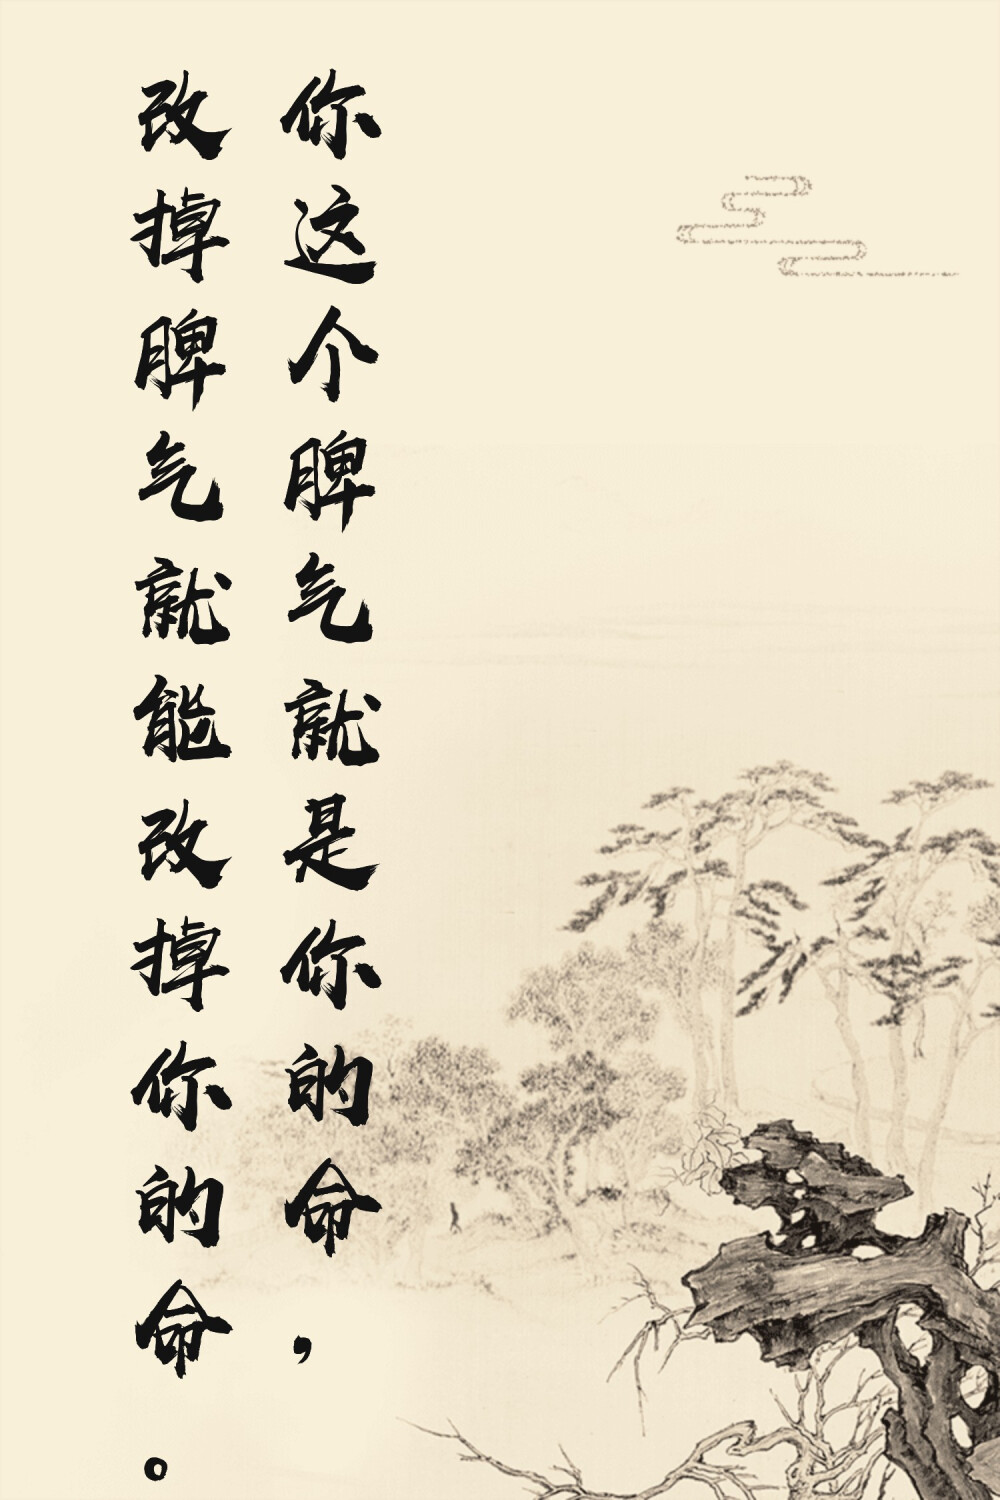 你这个脾气就是你的命，
改掉脾气就能改掉你的命。